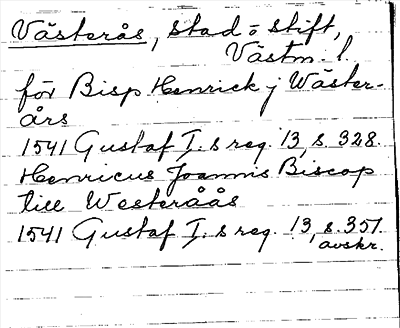 Västerås, Stad o Stift,
Västm. l.
för Bisp Henrick j Wäster-
års
1541 Gustaf I:s reg. 13, s. 328.
Henricus Joannis Biscop
till Westeråås
1541 Gustaf I:s reg. 13, s. 351.
avskr.